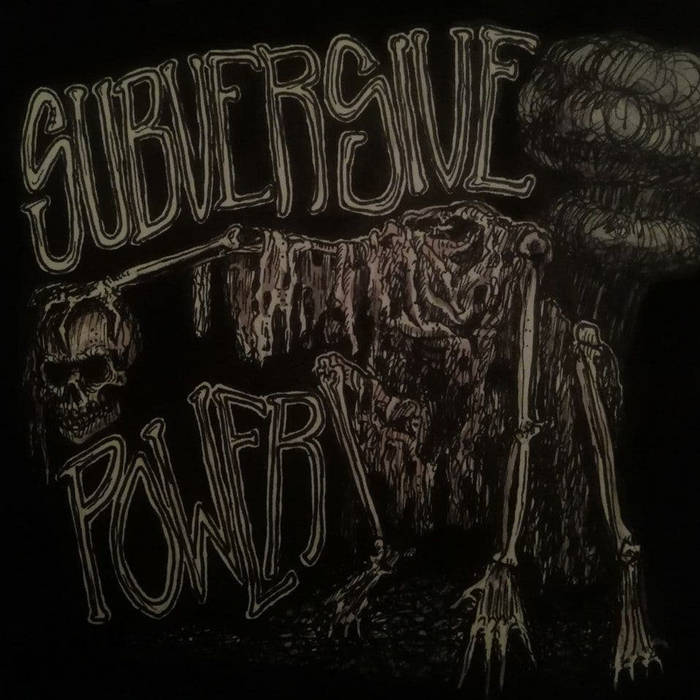 SUBVERSIVE
POWER